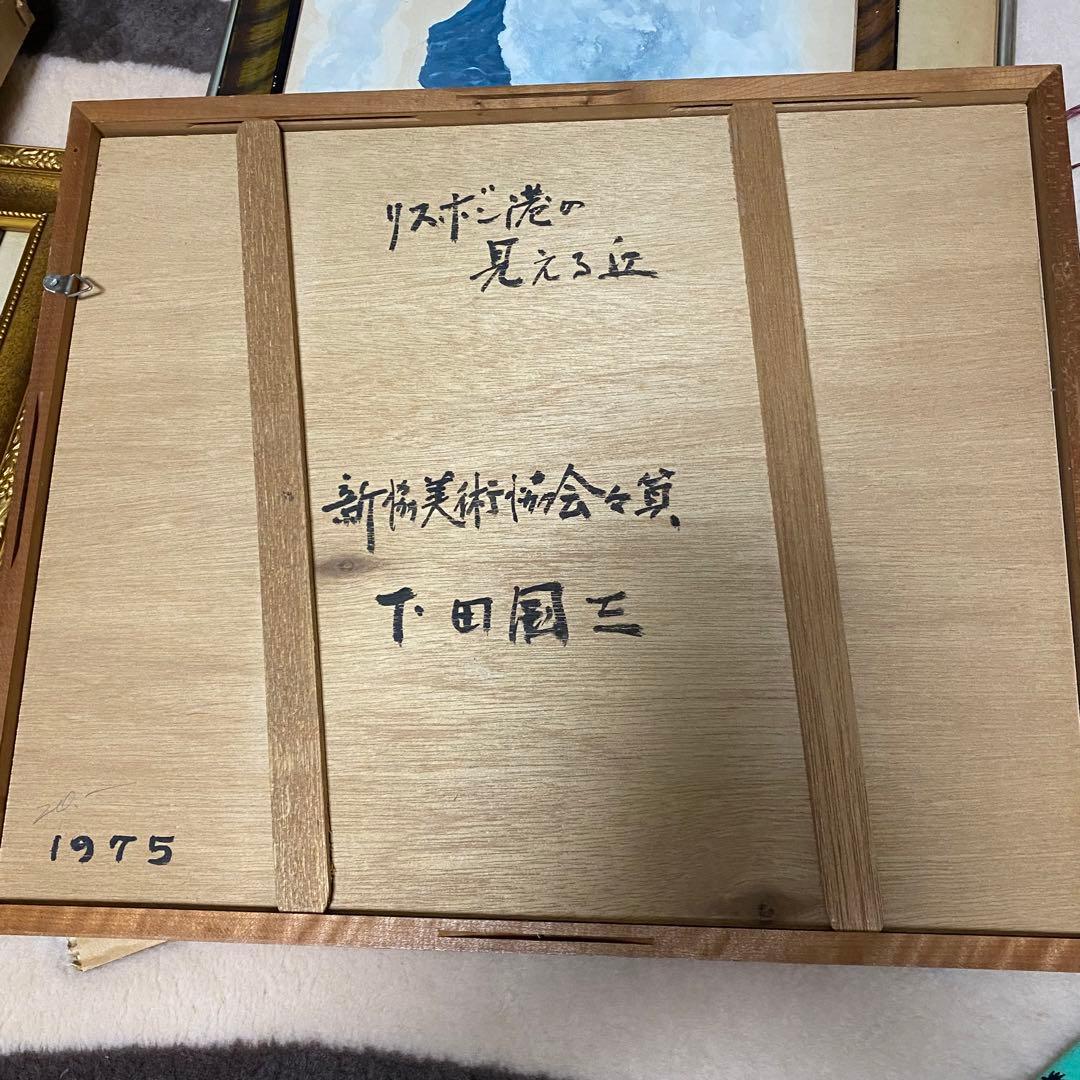 リスボン港の
見える丘
新協美術協会々員
下田国三
1975